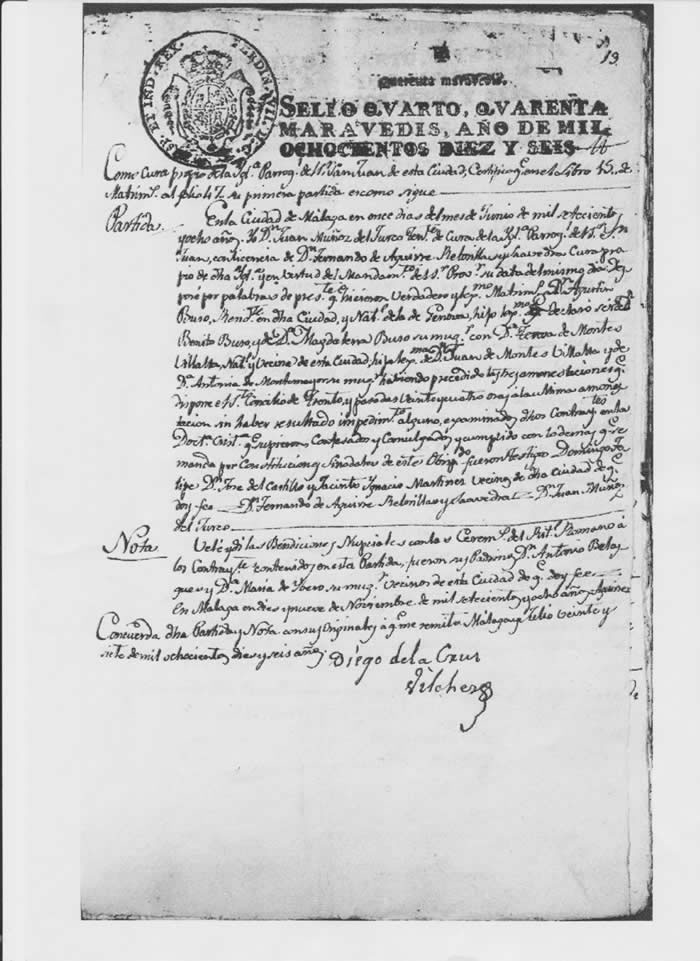 13.
Quarenta maravedis.
SELLO QVARTO, QVARENTA
MARAVEDIS, AÑO DE MIL
OCHOCIENTOS DIEZ Y SEIS
HISP. ET IND. REX. FERDIN. VII. D. G.
Como Cura propio de la Ygl.ª Parroq.l de S.n Juan de esta Ciudad, Certifico q.e en el Libro 15. de
Matrim.s al folio 47. su primera partida es como sigue
Partida. En la Ciudad de Málaga en once dias del mes de Junio de mil setecientos
y ocho años, Yo D.n Juan Muñoz del Turco Ten.te de Cura de la Ygl.ª Parroq.l de S.n
Juan, con licencia de D.n Fernando de Aguirre Rebonillas y Saavedra Cura pro-
pio de dha Ygl.ª y en virtud del Mandam.to del S.r Prov.r su data del mismo dia Des-
posé por palabras de pres.te q.e hicieron Verdadero y Lex.mo Matrim.º á D.n Agustin
Buso, en dha Ciudad, y Nat.l de la de Genova, hijo lex.mo de
Benito Buso, y de D.ª Magdalena Buso su mug.r con D.ª Teresa de Montes
Villalta, Nat.l y Vecina de esta Ciudad, hija lex.ma de D.n Juan de Montes Villalta y de
D.ª Antonia de Montemayor su mug.r habiendo precedido las tres amonestaciones q.e
dispone el S.to Concilio de Trento, y pasadas veinte y quatro oras á la ultima amones-
tacion sin haber resultado impedim.to alguno, examinados dhos Contray.tes en la
Doct.na Crist.na q.e supieron Confesados y Comulgados y cumplido con lo demas q.e se
manda por Constituciones Sinodales de este Obispado fueron testigos Domingo
D.n Jose del Castillo y Jacinto Ignacio Martinez Vecinos de dha Ciudad de q.e
doy fee D.n Fernando de Aguirre Rebonillas y Saavedra D.n Juan Muñoz
del Turco
Nota Velé y di las Bendiciones Nupciales con las Cerem.s del Rit.l Romano á
los Contray.tes contenidos en esta Partida, fueron sus Padrinos D.n Antonio
que y D.ª Maria de Yvero su mug.r Vecinos de esta Ciudad de q.e doy fee
En Málaga en dies y nueve de Noviembre de mil setecientos y ocho años Aguirre
Concuerda dha Partida y Nota con sus Originales á q.e me remito Málaga y Julio veinte y
siete de mil ochocientos dies y seis años
Diego de la Cruz
Vilchez